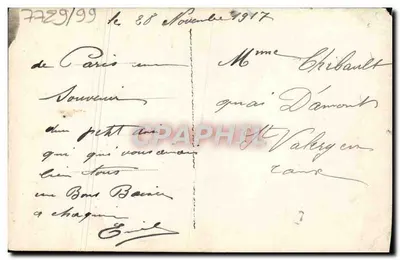 7729/99
le 28 Novembre 1917
de Paris un
souvenir
du petit
qui vous
bien tous
un Bons Baiser
a chaqun
Emile
Mme Thibault
quai D'amont
St Valery en
CPARAMA